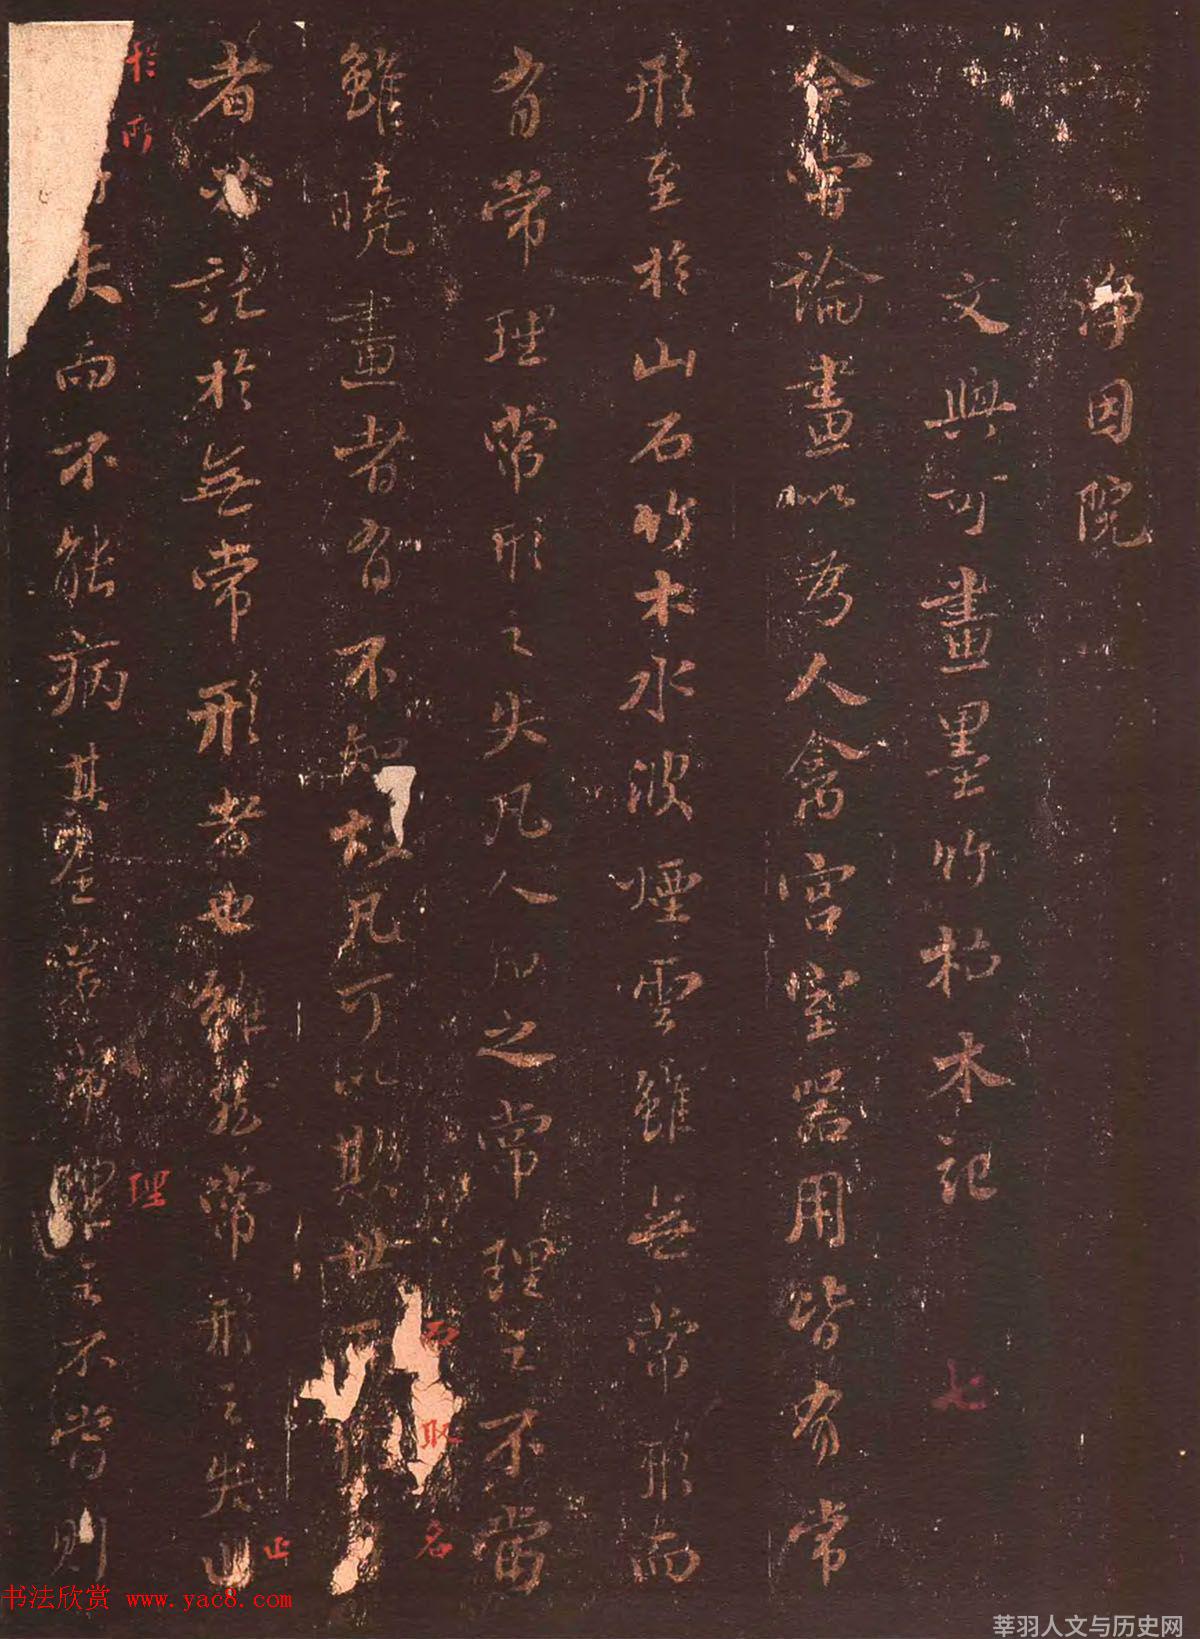 淨因院
文與可畫墨竹枯木記 七
余嘗論畫以為人禽宮室器用皆有常
形至於山石竹木水波煙雲雖無常形而
有常理常形之失凡人知之常理之不當
雖曉畫者有不知故凡可以欺世
而取名
者必託於無常形者也雖然常形之失止
止
於所
理
失而不能病其全若常理之不當則
书法欣赏 www.yac8.com
莘羽人文与历史网